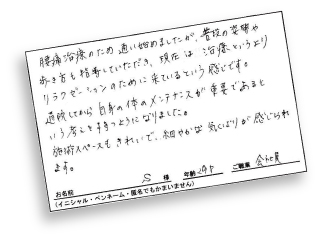 腰痛治療のため通い始めましたが、普段の姿勢や
歩き方も指導していただき、現在は治療というより
リラクゼーションのために来ているという感じです。
通院してから自身の体のメンテナンスが重要であると
いう考えを持つようになりました。
施術スペースもきれいで、細やかな気くばりが感じられ
ます。
お名前 S 様 年齢 24才 ご職業 会社員
(イニシャル・ペンネーム・匿名でもかまいません)